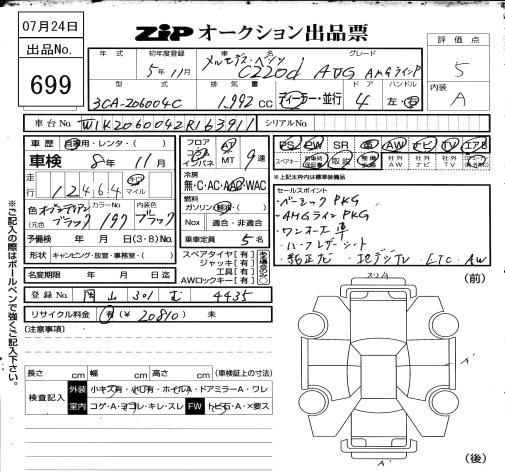 07月24日
出品No.
699
ZiP オークション出品票
評価点
5
内装
A
年式 初年度登録 車名 グレード
5年11月 メルセデス・ベンツ C220d AVG AMGラインP
型式 排気量 ドア ハンドル
3CA-206004C 1,992 cc ディーラー・並行 4 左・右
車台No. W1K2060042R163911 シリアルNo.
車歴 自家用・レンタ・( )
車検 8年11月
走行 12,464 km マイル
色 オブシディアンブラック カラーNo. 197 内装色 ブラック
予備検 年 月 日(3・8)No.
形状 キャンピング・放室・事務室・( )
名変期限 年 月 日迄
フロア コラム インパネ AT MT 9速
冷房
無・C・AC・AAC・WAC
燃料
ガソリン・軽油・( )
Nox 適合・非適合
乗車定員 5名
スペアタイヤ[有・ ]
ジャッキ[有・ ]
工具[有・ ]
AWロックキー[有・ ]
PS PW SR 革 AW ナビ TV エアB
スペアキー 新車時保証書 取説 整備手帳 社外AW 社外ナビ 社外TV
※上記太枠内は標準装備品
セールスポイント
・ベーシックPKG
・AMGラインPKG
・ワンオーナー車
・ハーフレザーシート
・純正ナビ ・地デジTV ・ETC ・AW
登録No. 岡山 301 む 4435
リサイクル料金 有(¥ 20810) 未
[注意事項]
長さ cm 幅 cm 高さ cm (車検証上の寸法)
検査記入 外装 小キズ有・小凹有・ホイルA・ドアミラーA・ワレ
室内 コゲ・A・ヨゴレ・キレ・スレ FW トビ石・A・×要ス
(前)
スリA
A'
A'
(後)
※ご記入の際はボールペンで強くご記入下さい。